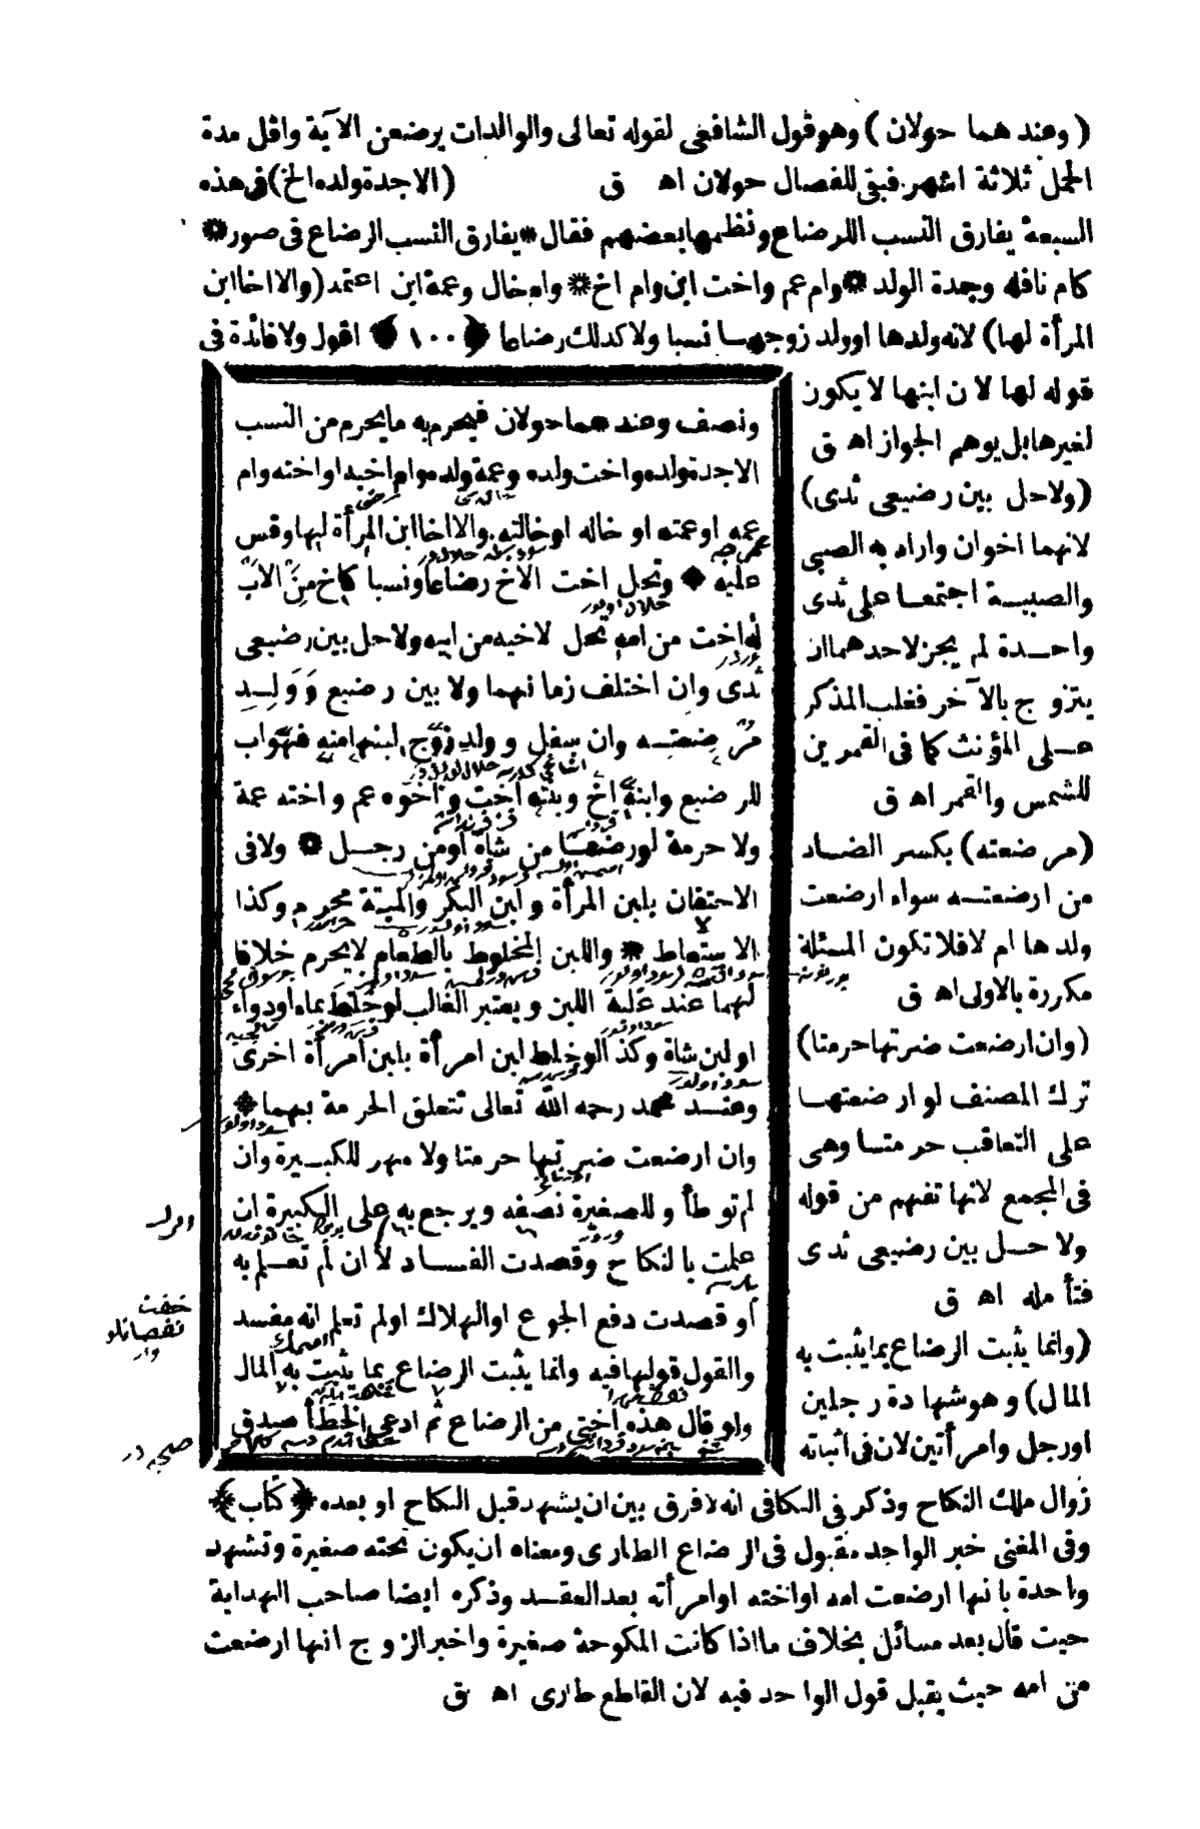 ( وعند هما حولان ) وهو قول الشافعى لقوله تعالى والوالدات يرضعن الآية واقل مدة
الحمل ثلاثة اشهر فبقى للفصال حولان اه ق (الاجدة ولده الخ) فى هذه
السبعة يفارق النسب الرضاع ونظمها بعضهم فقال * يفارق النسب الرضاع فى صور *
كام نافلة وجدة الولد * وام عم واخت ابن وام اخ * وام خال وعمة ابن اعتمد (والا اخا ابن
المرأة لها) لانه ولدها او ولد زوجها نسبا ولا كذلك رضاعا ﴿ ١٠٠ ﴾ اقول ولا فائدة فى
قوله لها لان ابنها لا يكون
لغيرها بل يوهم الجواز اه ق
(ولاحل بين رضيعى ثدى)
لانهما اخوان واراد به الصبى
والصبية اجتمعا على ثدى
واحدة لم يجز لاحدهما ان
يتزوج بالآخر فغلب المذكر
على المؤنث كما فى القمرين
للشمس والقمر اه ق
(مرضعته) بكسر الضاد
من ارضعته سواء ارضعت
ولدها ام لا فلا تكون المسئلة
مكررة بالاولى اه ق
(وان ارضعت ضرتها حرمتا)
ترك المصنف لو ارضعتها
على التعاقب حرمتا وهى
فى المجمع لانها تفهم من قوله
ولا حل بين رضيعى ثدى
فتأمله اه ق
(وانما يثبت الرضاع بما يثبت به
المال) وهو شهادة رجلين
او رجل وامرأتين لان فى اثباته
ونصف وعندهما حولان فيحرم به ما يحرم من النسب
الا جدة ولده واخت ولده وعمة ولده وام اخيه او اخته وام
عمه او عمته او خاله او خالته والا اخا ابن المرأة لها وقس
عليه * وتحل اخت الاخ رضاعا ونسبا كاخ من الاب
له اخت من امه تحل لاخيه من ابيه ولا حل بين رضيعى
ثدى وان اختلف زمانهما ولا بين رضيع وولد
مرضعته وان سفل وولد زوج لبنها منه فهو اب
للرضيع وابنه اخ وبنته اخت واخوه عم واخته عمة
ولا حرمة لو رضعا من شاة او من رجل * ولا فى
الاحتقان بلبن المرأة ولبن البكر والميتة محرم وكذا
الاستعاط * واللبن المخلوط بالطعام لا يحرم خلافا
لهما عند غلبة اللبن ويعتبر الغالب لو خلط بماء او دواء
او لبن شاة وكذا لو خلط لبن امرأة بلبن امرأة اخرى
وعند محمد رحمه الله تعالى تتعلق الحرمة بهما *
وان ارضعت ضرتها حرمتا ولا مهر للكبيرة وان
لم توطأ وللصغيرة نصفه ويرجع به على الكبيرة ان
علمت بالنكاح وقصدت الفساد لا ان لم تعلم به
او قصدت دفع الجوع او الهلاك او لم تعلم انه مفسد
والقول قولها فيه وانما يثبت الرضاع بما يثبت به المال
ولو قال هذه اختى من الرضاع ثم ادعى الخطأ صدق
زوال ملك النكاح وذكر فى الكافى انه لا فرق بين ان يشهد قبل النكاح او بعده ﴿ كتاب ﴾
وفى المغنى خبر الواحد مقبول فى الرضاع الطارى ومعناه ان يكون تحته صغيرة وتشهد
واحدة بانها ارضعت امه او اخته او امرأته بعد العقد وذكره ايضا صاحب الهداية
حيث قال بعد مسائل بخلاف ما اذا كانت المنكوحة صغيرة واخبر الزوج انها ارضعت
من امه حيث يقبل قول الواحد فيه لان القاطع طارى اه ق